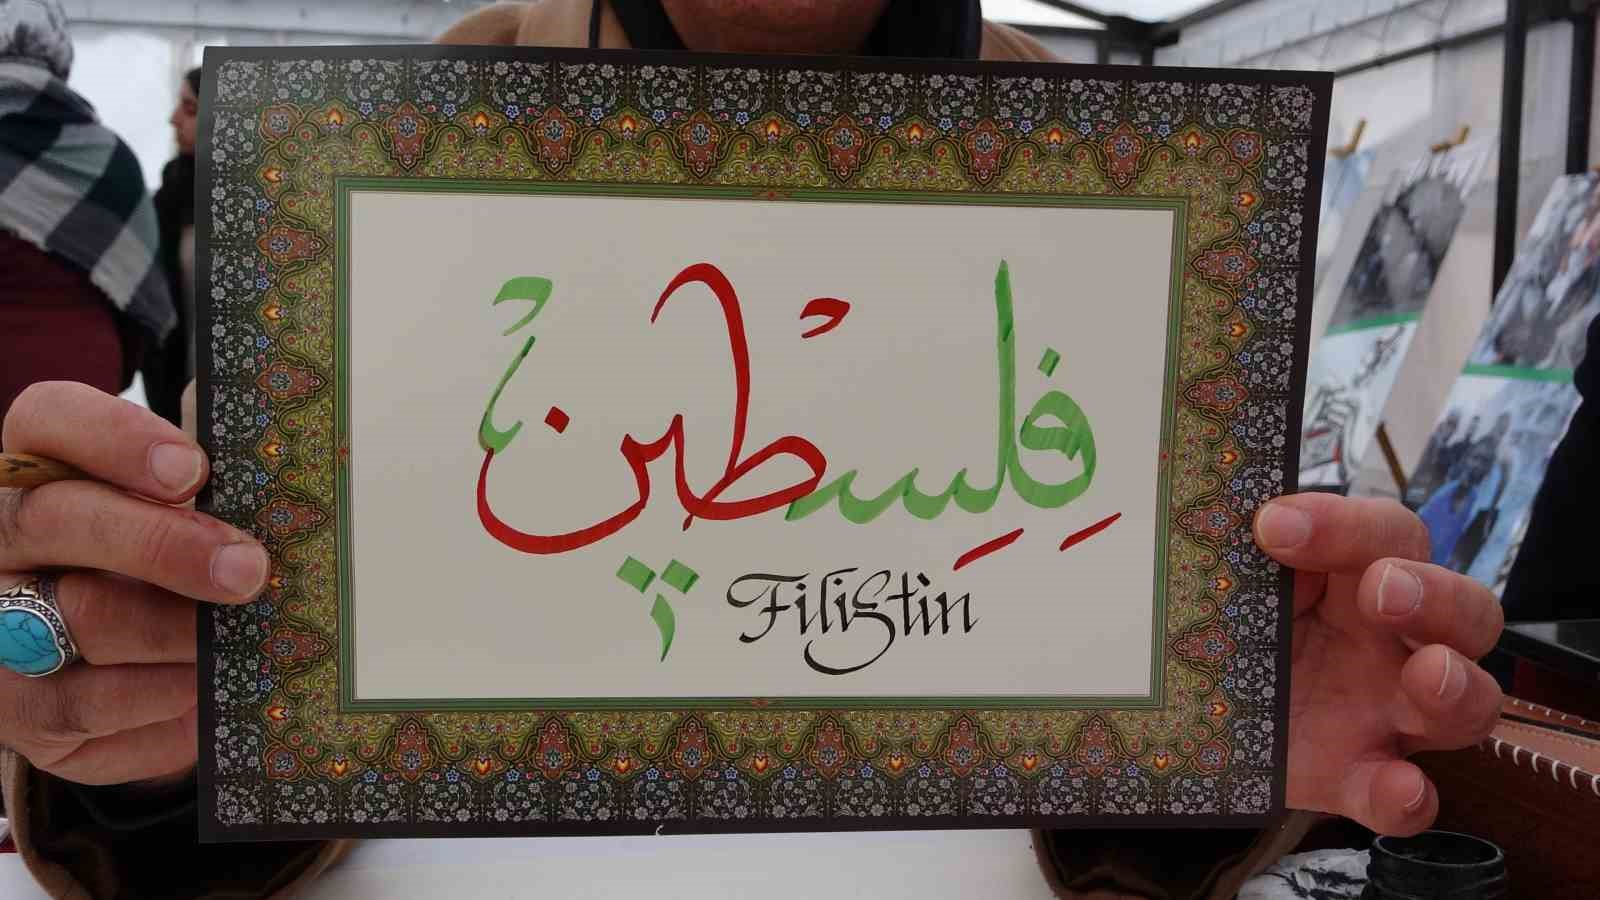 فِلِسطين
Filistin